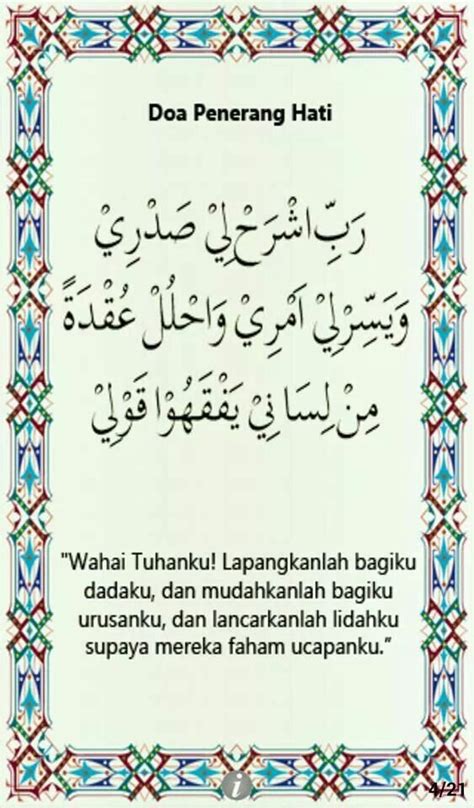 Doa Penerang Hati
رَبِّ اشْرَحْ لِيْ صَدْرِيْ
وَيَسِّرْلِيْ اَمْرِيْ وَاحْلُلْ عُقْدَةً
مِنْ لِسَانِيْ يَفْقَهُوْا قَوْلِيْ
"Wahai Tuhanku! Lapangkanlah bagiku
dadaku, dan mudahkanlah bagiku
urusanku, dan lancarkanlah lidahku
supaya mereka faham ucapanku.”
i
4/21